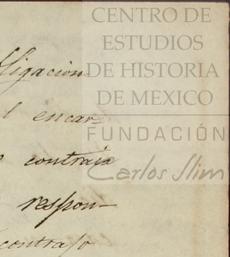 CENTRO DE
ESTUDIOS
DE HISTORIA
DE MEXICO
FUNDACIÓN
Carlos Slim
ligacion
l encar-
contraia
respon-
contrajo